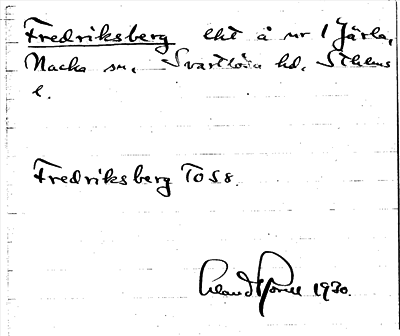 Fredriksberg lht å nr 1 Järla,
Nacka sn, Svartlösa hd, Sthlms
l.
Fredriksberg To 58.
1930.